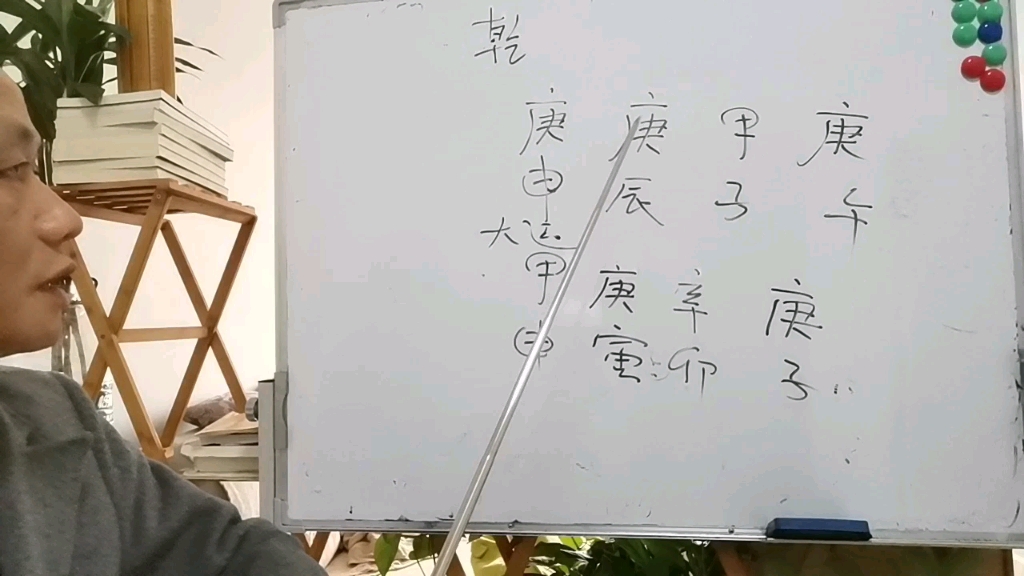 乾
庚 庚 甲 庚
申 辰 子 午
大运
甲 庚 辛 庚
申 寅 卯 子